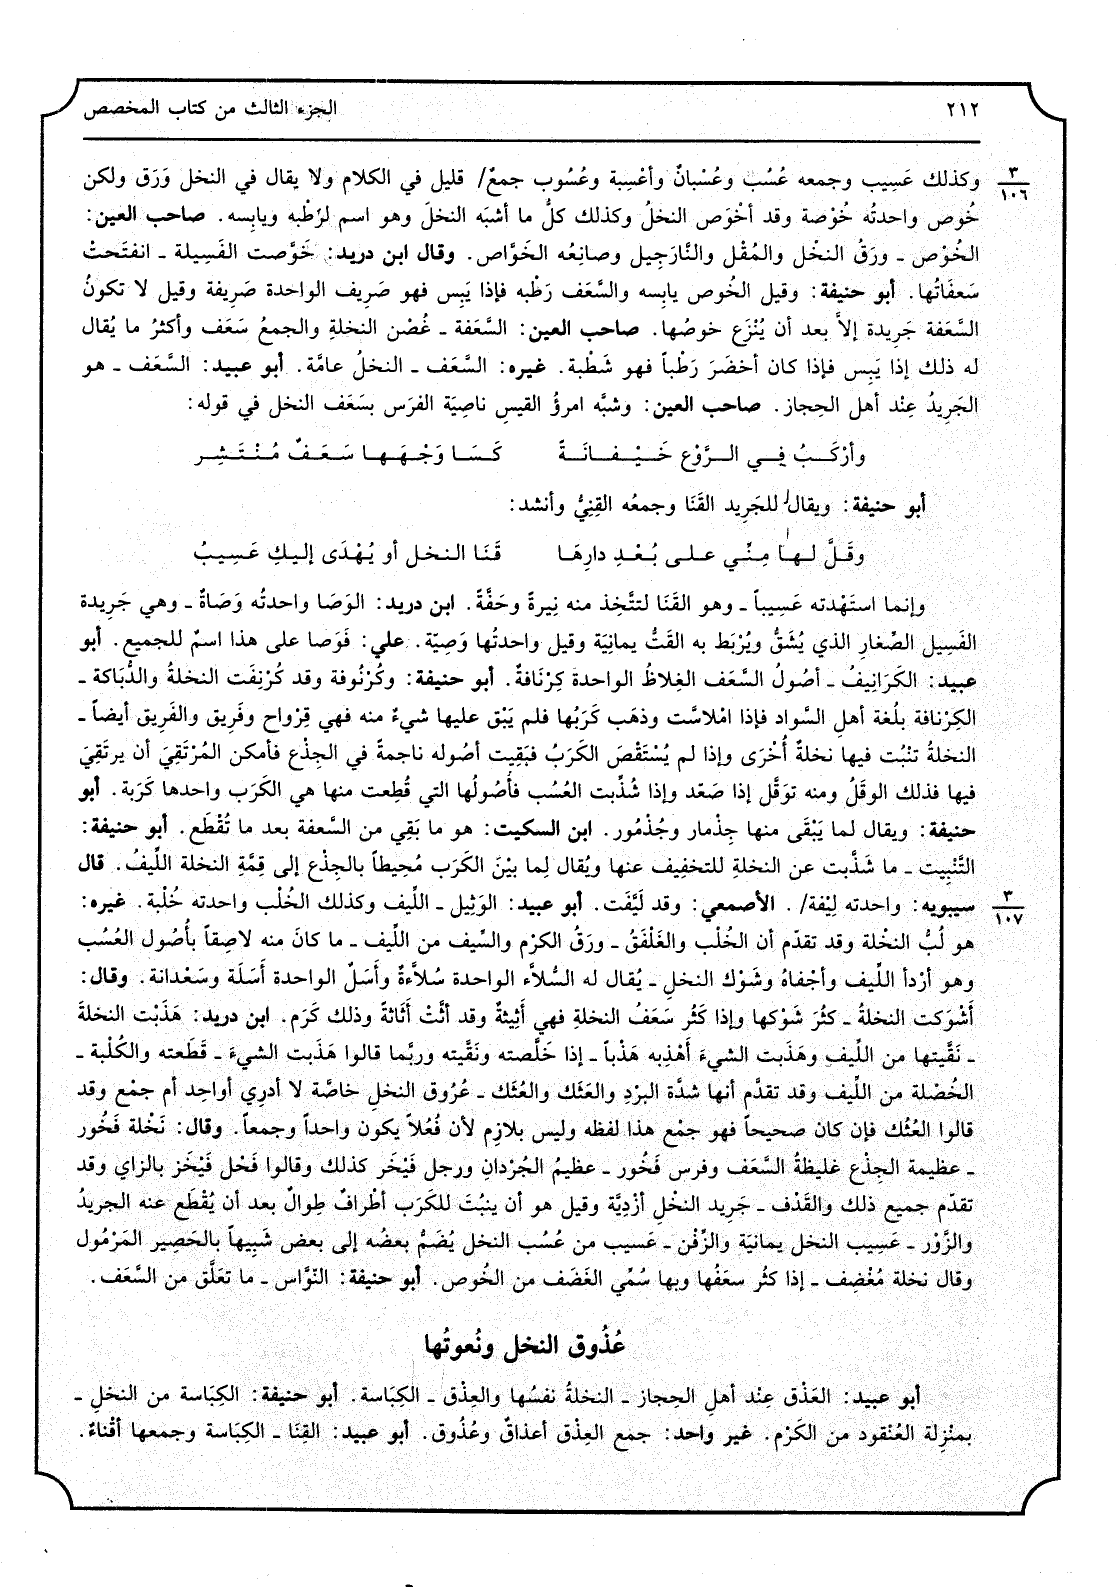 ٢١٢ الجزء الثالث من كتاب المخصص
٣
١٠٦
وكذلك عَسِيب وجمعه عُسُب وعُسْبانٌ وأعْسِبة وعُسُوب جمعٌ/ قليل في الكلام ولا يقال في النخل وَرَق ولكن
خُوص واحدتُه خُوْصة وقد أخْوَص النخلُ وكذلك كلُّ ما أشبَه النخلَ وهو اسم لرَطْبه ويابِسه. صاحب العين:
الخُوْص ـ ورَقُ النخْل والمُقْل والنَّارَجِيل وصانِعُه الخَوَّاص. وقال ابن دريد: خَوَّصت الفَسِيلة ـ انفتَحتْ
سَعفَاتُها. أبو حنيفة: وقيل الخُوص يابِسه والسَّعَف رَطْبه فإذا يَبِس فهو صَرِيف الواحدة صَرِيفة وقيل لا تكونُ
السَّعَفة جَرِيدة إلاَّ بعد أن يُنْزَع خوصُها. صاحب العين: السَّعَفة ـ غُصْن النخلةِ والجمعُ سَعَف وأكثرُ ما يُقال
له ذلك إذا يَبِس فإذا كان أخضَرَ رَطْباً فهو شَطْبة. غيره: السَّعَف ـ النخلُ عامَّة. أبو عبيد: السَّعَف ـ هو
الجَرِيدُ عِنْد أهل الحِجاز. صاحب العين: وشبَّه امرؤُ القيسِ ناصِيَة الفرَس بسَعَف النخل في قوله:
وأرْكَبُ فِي الرَّوْع خَيْفَانَةً كَسَا وَجْهَهَا سَعَفٌ مُنْتَشِر
أبو حنيفة: ويقال للجَرِيد القَنَا وجمعُه القِنِيُّ وأنشد:
وقَلَّ لها مِنِّي على بُعْدِ دارِهَا قَنَا النخل أو يُهْدَى إليكِ عَسِيبُ
وإنما استَهْدته عَسِيباً ـ وهو القَنَا لتتَّخِذ منه نِيرةً وحَفَّةً. ابن دريد: الوَصَا واحدتُه وَصَاةٌ ـ وهي جَرِيدة
الفَسِيل الصِّغارِ الذي يُشَقُّ ويُرْبَط به القَتُّ يمانِيَة وقيل واحدتُها وَصِيّة. علي: فَوَصا على هذا اسمٌ للجميع. أبو
عبيد: الكَرَانِيفُ ـ أصُولُ السَّعَف الغِلاظُ الواحدة كِرْنَافةٌ. أبو حنيفة: وكُرْنُوفة وقد كُرْنِفَت النخلةُ والدُّبَاكة ـ
الكِرْنافة بلُغة أهلِ السَّواد فإذا امْلاست وذهَب كَرَبُها فلم يَبْق عليها شيءٌ منه فهي قِرْواح وفَرِيق والفَرِيق أيضاً ـ
النخلةُ تنْبُت فيها نخلةٌ أُخْرَى وإذا لم يُسْتَقْصَ الكَرَبُ فبَقِيت أصُوله ناجمةً في الجِذْع فأمكن المُرْتَقِيَ أن يرتَقِيَ
فيها فذلك الوقَلُ ومنه توَقَّل إذا صَعّد وإذا شُذِّبت العُسُب فأُصُولُها التي قُطِعت منها هي الكَرَب واحدها كَرَبة. أبو
حنيفة: ويقال لما يَبْقَى منها جِذْمار وجُذْمُور. ابن السكيت: هو ما بَقِي من السَّعفة بعد ما تُقْطَع. أبو حنيفة:
التَّنْبِيت ـ ما شَذَّبت عن النخلةِ للتخفِيف عنها ويُقال لِما بيْنَ الكَرَب مُحِيطاً بالجِذْع إلى قِمَّة النخلة اللِّيفُ. قال
٣
١٠٧
سيبويه: واحدته لِيْفة/. الأصمعي: وقد لَيَّفَت. أبو عبيد: الوَثِيل ـ اللِّيف وكذلك الخُلْب واحدته خُلْبة. غيره:
هو لُبُّ النخْلة وقد تقدّم أن الخُلْب والغَلْفَقَ ـ ورَقُ الكرْم والسِّيف من اللِّيف ـ ما كانَ منه لاصِقاً بأُصُول العُسُب
وهو أرْدأ اللِّيف وأجْفاهُ وشَوْك النخلِ ـ يُقال له السُّلاَّء الواحدة سُلاَّءةٌ وأَسَلٌ الواحدة أَسَلَة وسَعْدانة. وقال:
أشْوَكت النخلةُ ـ كثرَ شَوْكها وإذا كَثُر سَعَفُ النخلةِ فهي أَثِيثةٌ وقد أثَّتْ أَثَاثةً وذلك كَرَم. ابن دريد: هَذَبْت النخلةَ
ـ نَقَّيتها من اللِّيف وهَذَبت الشيءَ أَهْذِبه هَذْباً ـ إذا خَلَّصته ونَقَّيته وربَّما قالوا هَذَبت الشيءَ ـ قَطَعته والكُلْبة ـ
الخُصْلة من اللِّيف وقد تقدَّم أنها شدَّة البرْدِ والعَثَك والعُثَك ـ عُرُوق النخلِ خاصَّة لا أدرِي أواحِد أم جمْع وقد
قالوا العُثُك فإن كان صحيحاً فهو جمْع هذا لفظه وليس بلازِم لأن فُعُلاً يكون واحداً وجمعاً. وقال: نَخْلة فَخُور
ـ عظيمة الجِذْع غليظةُ السَّعَف وفرس فَخُور ـ عظيمُ الجُرْدانِ ورجل فَيْخَر كذلك وقالوا فَحْل فَيْخَز بالزاي وقد
تقدّم جميع ذلك والقَذْف ـ جَرِيد النخْلِ أزْدِيَّة وقيل هو أن ينبُتَ للكَرَب أطْرافٌ طِوالٌ بعد أن يُقْطَع عنه الجريدُ
والزَّوْر ـ عَسِيب النخل يمانيَة والزِّفْن ـ عَسيب من عُسُب النخل يُضَمُّ بعضُه إلى بعض شَبِيهاً بالحَصِير المَرْمُول
وقال نخلة مُغْضِف ـ إذا كثُر سعَفُها وبها سُمِّي الغَضَف من الخُوص. أبو حنيفة: النّوَّاس ـ ما تعَلَّق من السَّعَف.
عُذُوق النخل ونُعوتُها
أبو عبيد: العَذْق عِنْد أهلِ الحجاز ـ النخلةُ نفسُها والعِذْق ـ الكِبَاسة. أبو حنيفة: الكِبَاسة من النخلِ ـ
بمنْزِلة العُنْقود من الكَرْم. غير واحد: جمع العِذْق أعذاقٌ وعُذُوق. أبو عبيد: القِنَا ـ الكِبَاسة وجمعها أقْناءٌ.